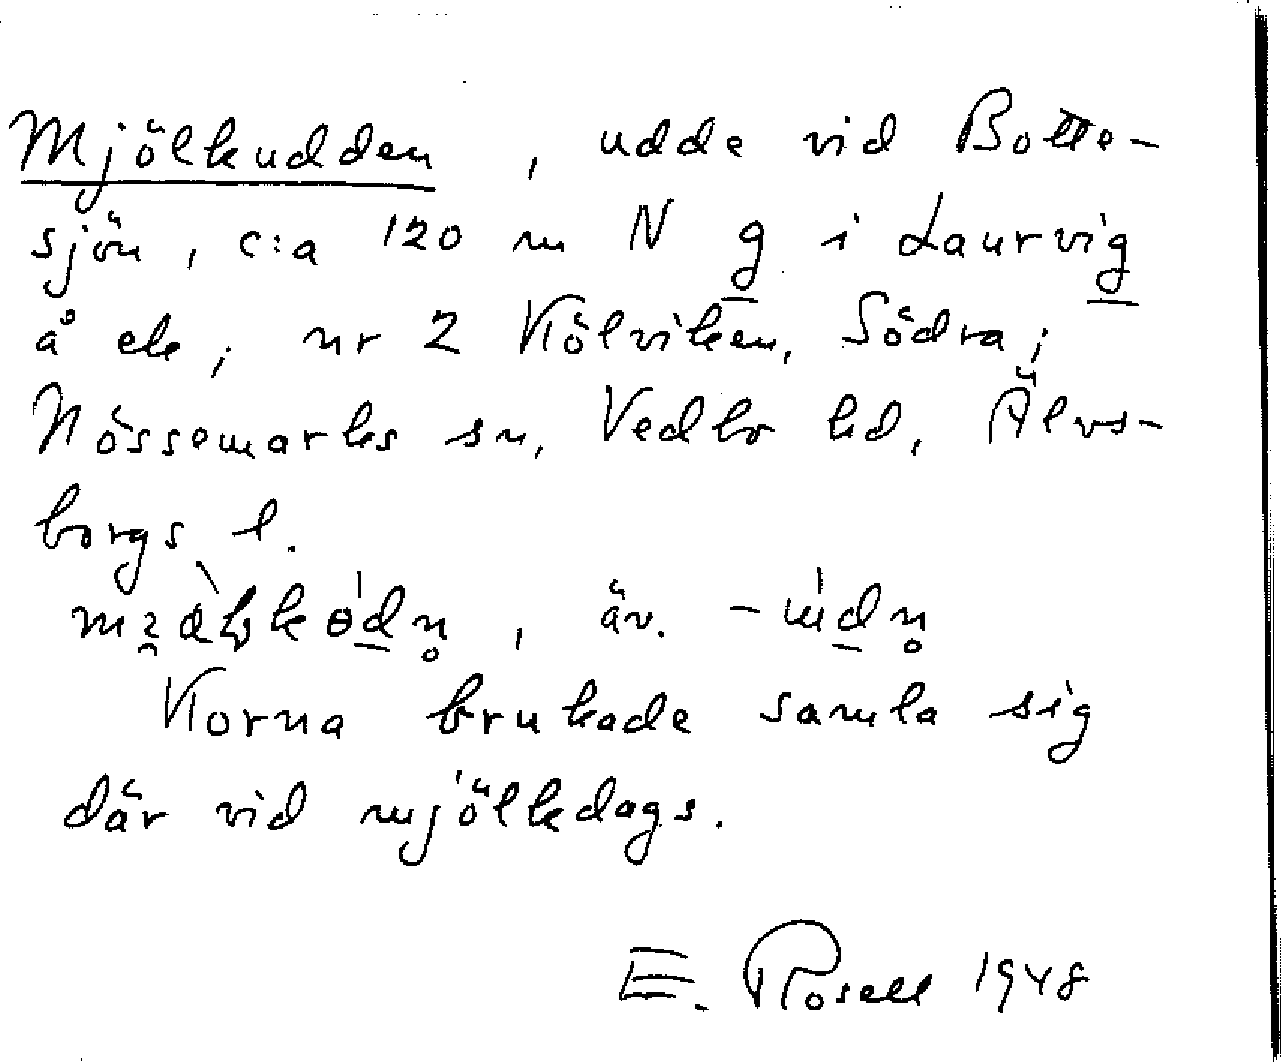 Mjölkudden, udde vid Botte-
sjön, c:a 120 m N g i Laurvig
å ek; nr 2 Kölviken, Södra;
Nössemarks sn, Vedbo hd, Älvs-
borgs l.
äv.
Korna brukade samla sig
där vid mjölkdags.
E. Rosell 1948